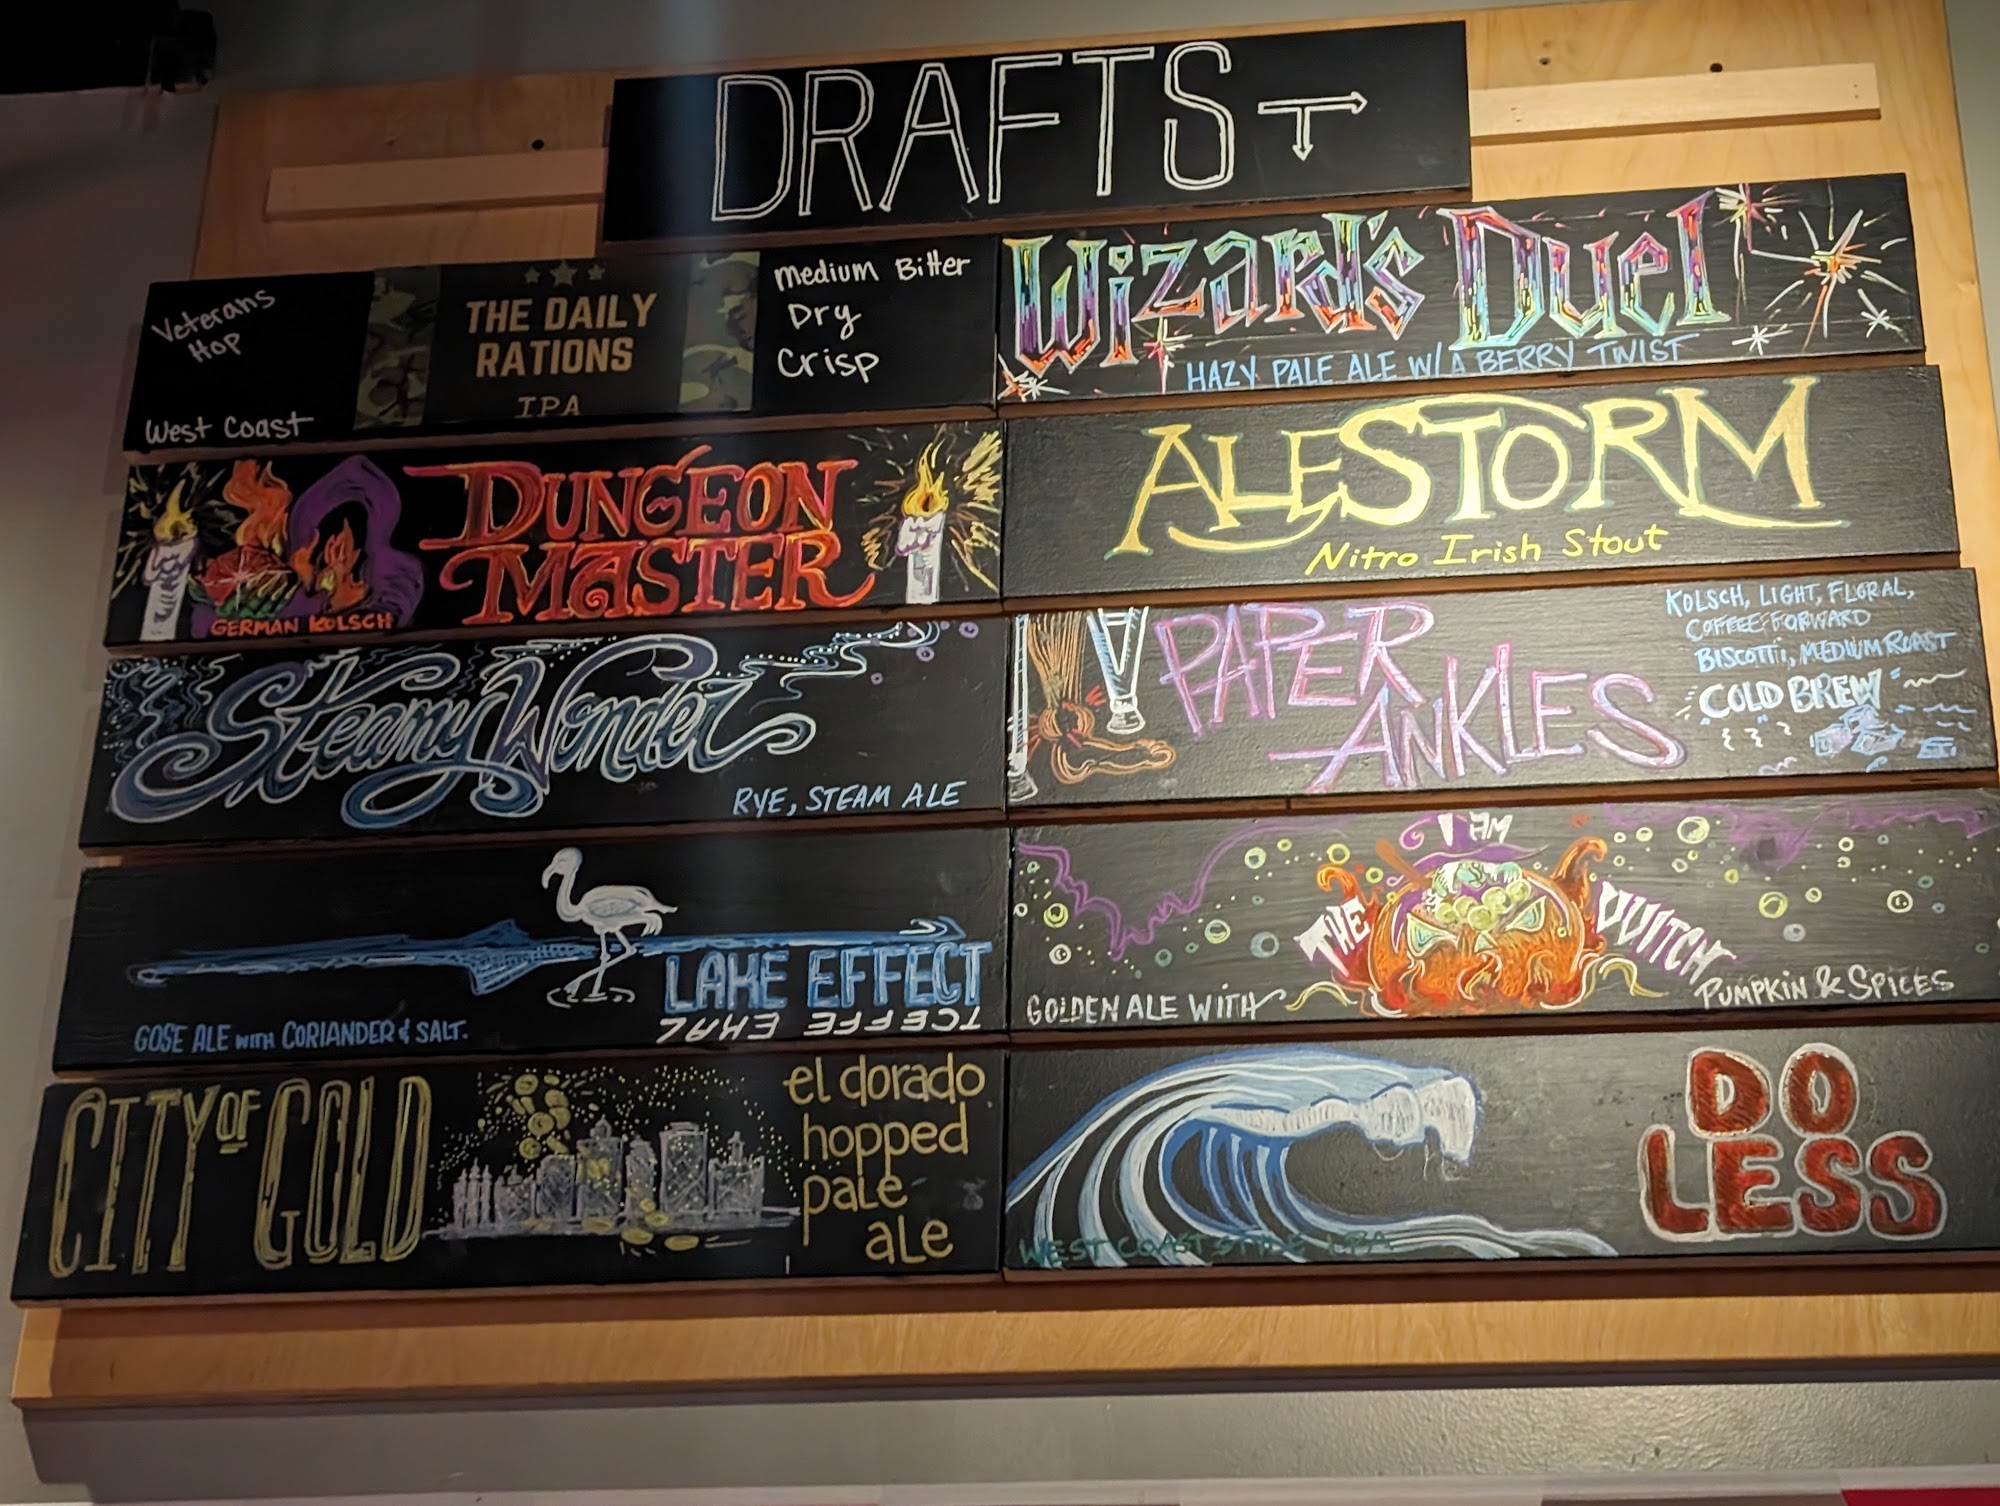 DRAFTS
Veterans
Hop
West Coast
THE DAILY
RATIONS
IPA
Medium Bitter
Dry
Crisp
Wizard's Duel
HAZY PALE ALE W/A BERRY TWIST
DUNGEON
MASTER
GERMAN KOLSCH
ALESTORM
Nitro Irish Stout
Steamy Wonder
RYE, STEAM ALE
PAPER
ANKLES
KOLSCH, LIGHT, FLORAL,
COFFEE-FORWARD
BISCOTTI, MEDIUM ROAST
COLD BREW
LAKE EFFECT
LAKE EFFECT
GOSE ALE WITH CORIANDER & SALT.
I AM
THE VVITCH
GOLDEN ALE WITH PUMPKIN & SPICES
CITY OF GOLD
el dorado
hopped
pale
ale
DO
LESS
WEST COAST STYLE IPA